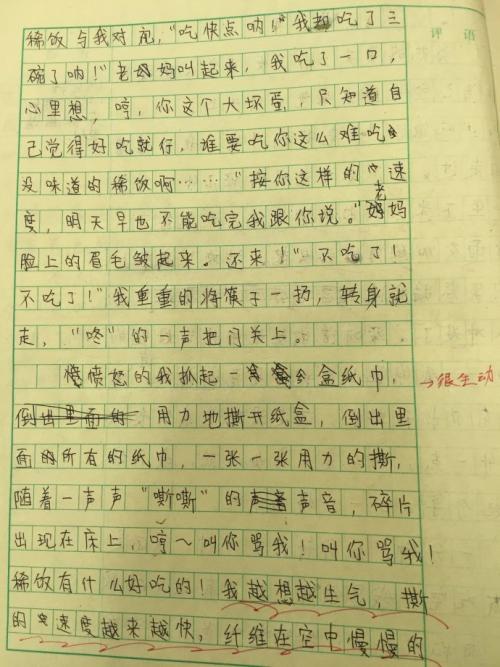 评语
稀饭与我对抗,"吃快点呐!"我都吃了三
碗了呐!"老妈妈叫起来,我吃了一口,
心里想,哼,你这个大坏蛋,只知道自
己觉得好吃就行,谁要吃你这么难吃
没味道的稀饭啊……"按你这样的速
度,明天早也不能吃完我跟你说。"老妈妈
脸上的眉毛皱起来。还来!"不吃了!
不吃了!"我重重的将筷子一扔,转身就
走,"咚"的一声把门关上。
愤怒的我抓起一盒纸巾,
→很生动
用力地撕开纸盒,倒出里
面的所有的纸巾,一张一张用力的撕,
随着一声声"嘶嘶"的声音,碎片
出现在床上,哼~叫你骂我!叫你骂我!
稀饭有什么好吃的!我越想越生气,撕
的速度越来越快,纤维在空中慢慢的